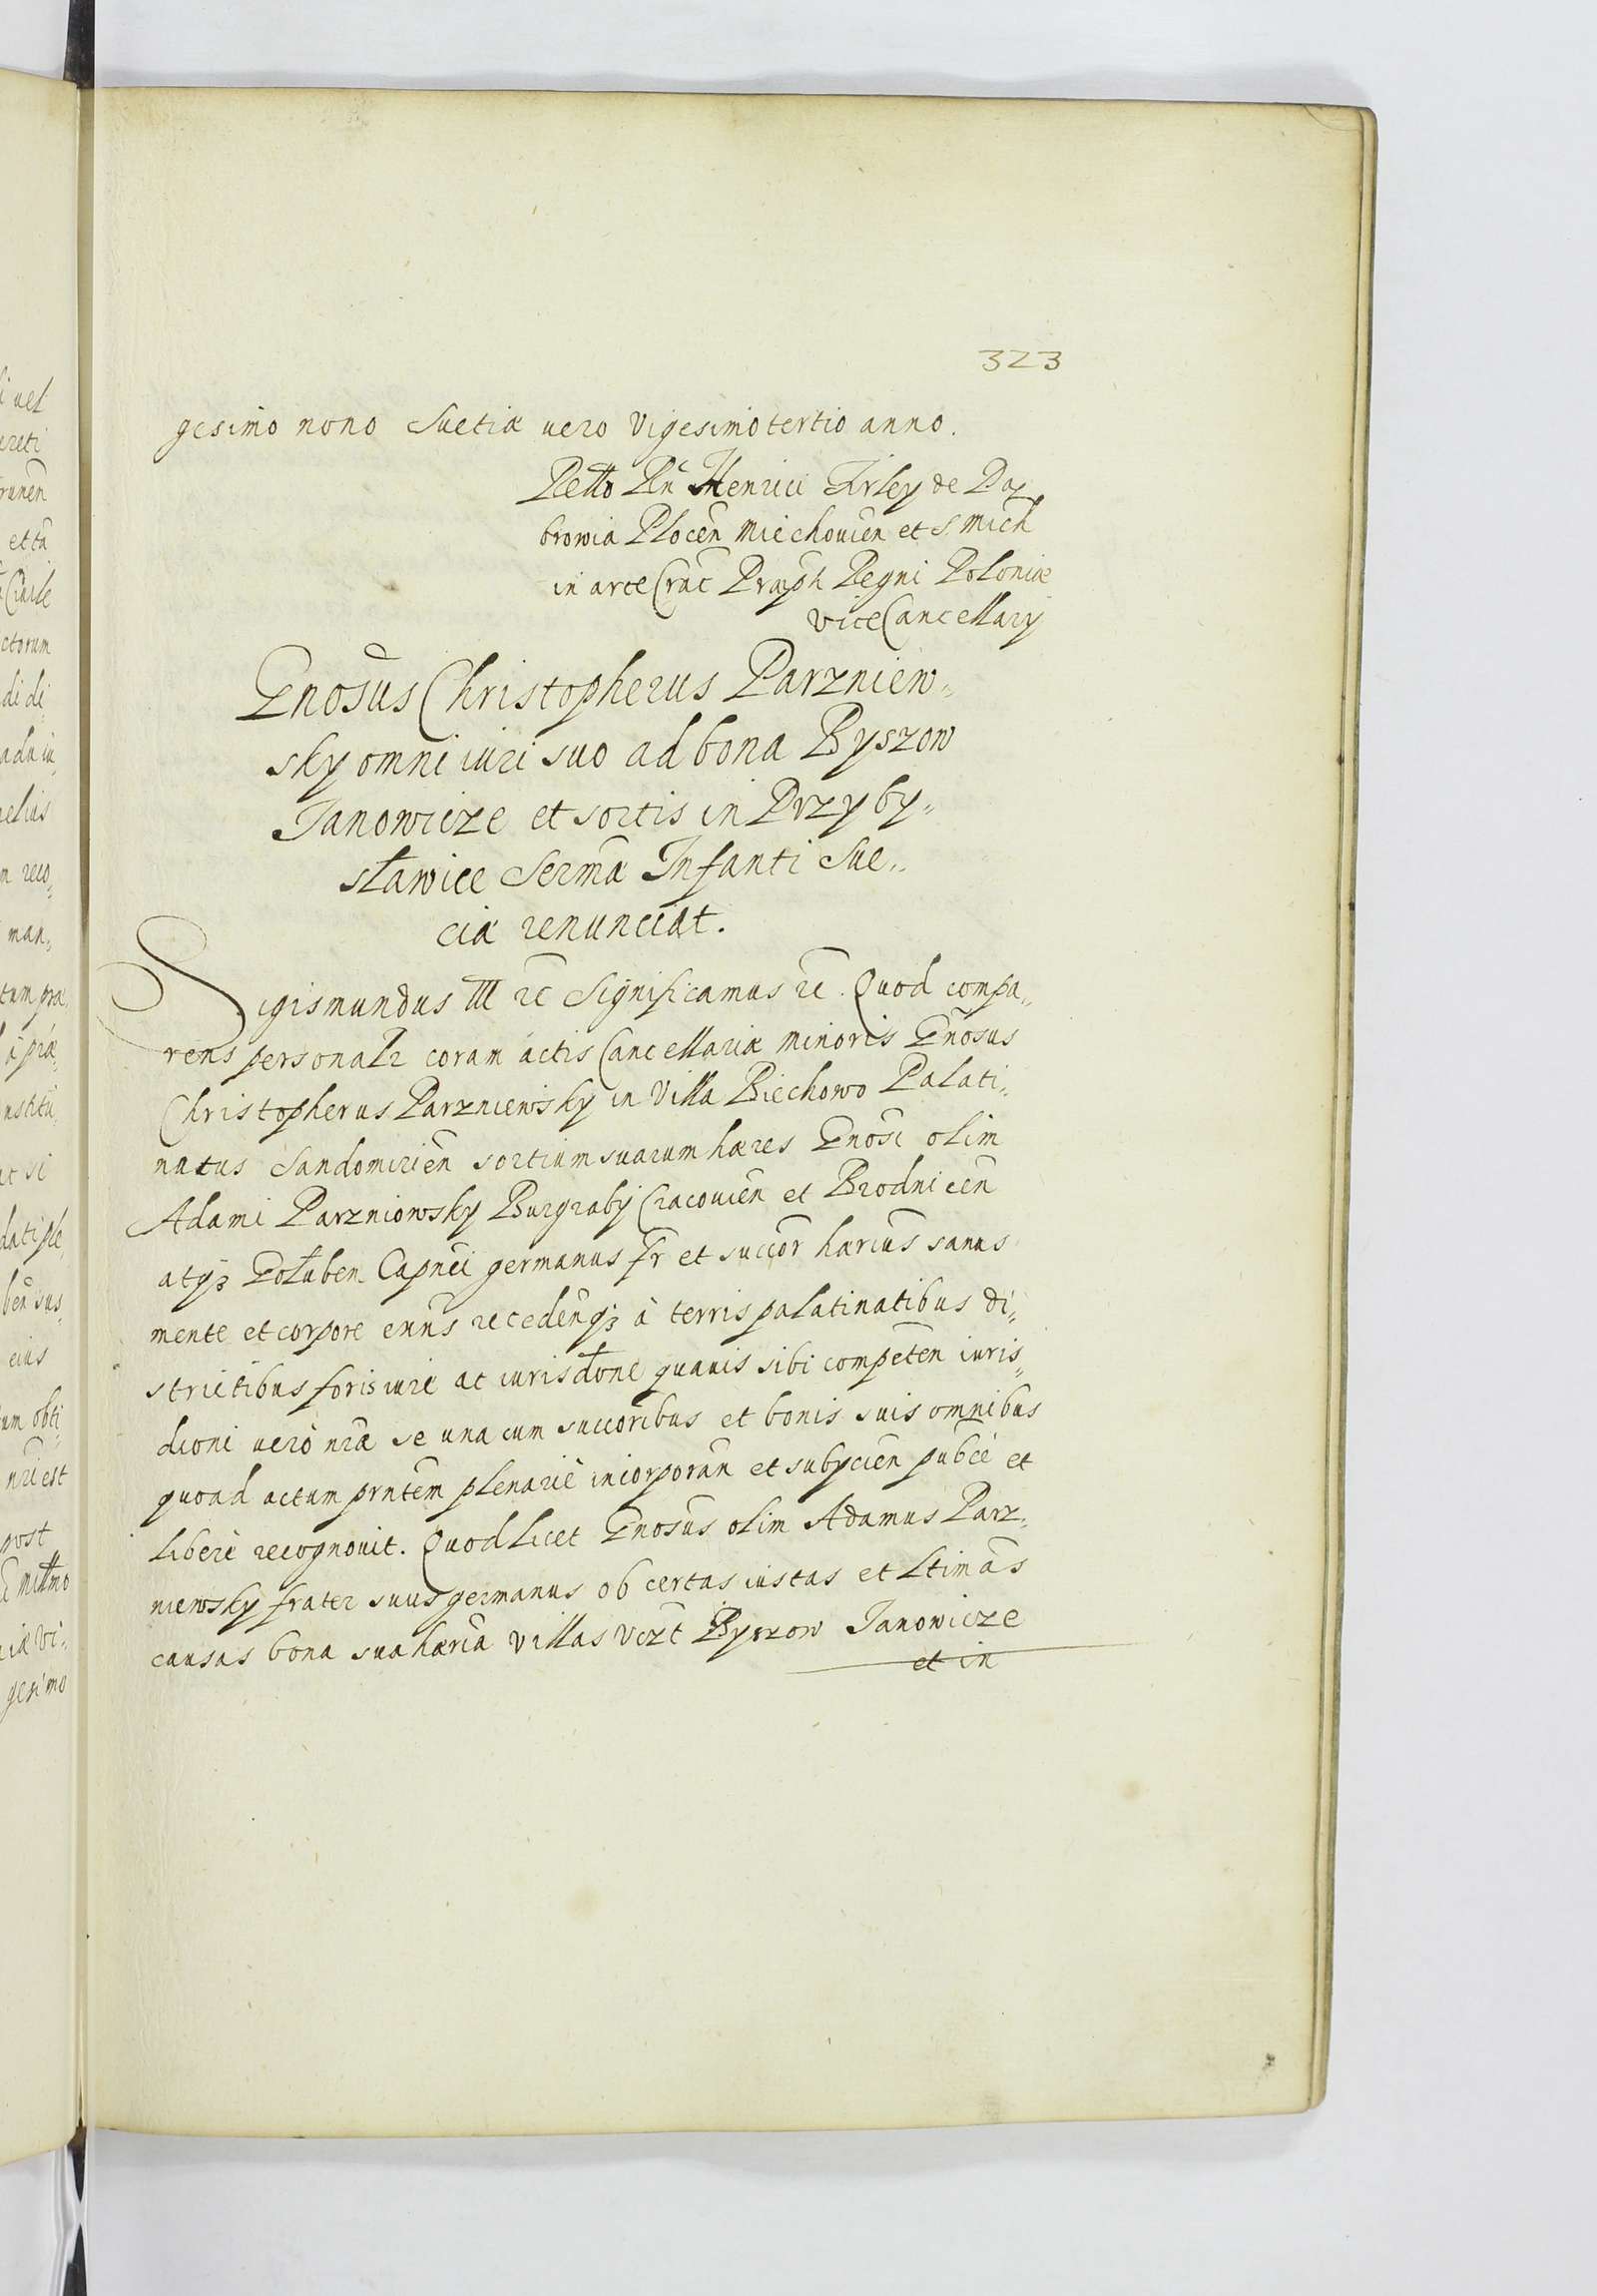 323
gesimo nono Suetiæ uero Vigesimotertio anno.
Rello Rñ Henrici Firley de Dą
browia Plocen̄ Miechouien̄ et S. Mich
in arce Crac̄ Præp̄ti Regni Poloniæ
ViceCancellarÿ
Gnos̄us Christopherus Parzniew„
sky omni iuri suo ad bona Byszow
Janowicze et sortis in Przyby„
sławice Serm̄æ Infanti Sue„
ciæ renunciat.
Sigismundus III ec̄ Significamus ec̄. Quod compa„
rens personalr coram actis Cancellariæ minoris Gn̄osus
Christopherus Parzniewsky in Villa Biechowo Palati„
natus Sandomirien̄ sortium suarum hæres Gnosi olim
Adami Parzniowsky Burgrabÿ Cracouien̄ et Brodnicen̄
atq3 Goluben Capnei germanus fr̄ et succor̄ hærius̄ sanus
mente et corpore enn̄s recedēnq3 à terris palatinatibus di„
strictibus foris iure ac iurisdone quauis sibi competen̄ iuris„
dioni uerò nr̄æ se una cum succorībus et bonis suis omnibus
quoad actum prn̄tem plenariè incorporan̄ et subÿcien̄ pub̄cè et
liberè recognouit. Quod licet Gnosūs olim Adamus Parz„
niewsky frater suus germanus ob certas iustas et Ltimās
causas bona sua hærīa Villas Vizt Byszow Janowicze
et in
i uel
ereti
runen̄
et tā
Ciuile
ctorum
di di„
adu iu„
elius
n reco„
man„
tum præ„
à præ„
nstitu„
ut si
dati ple„
ben̄ sus„
eius
um obti„
nri est
post
Millmo
iæ Vi„
gesimo